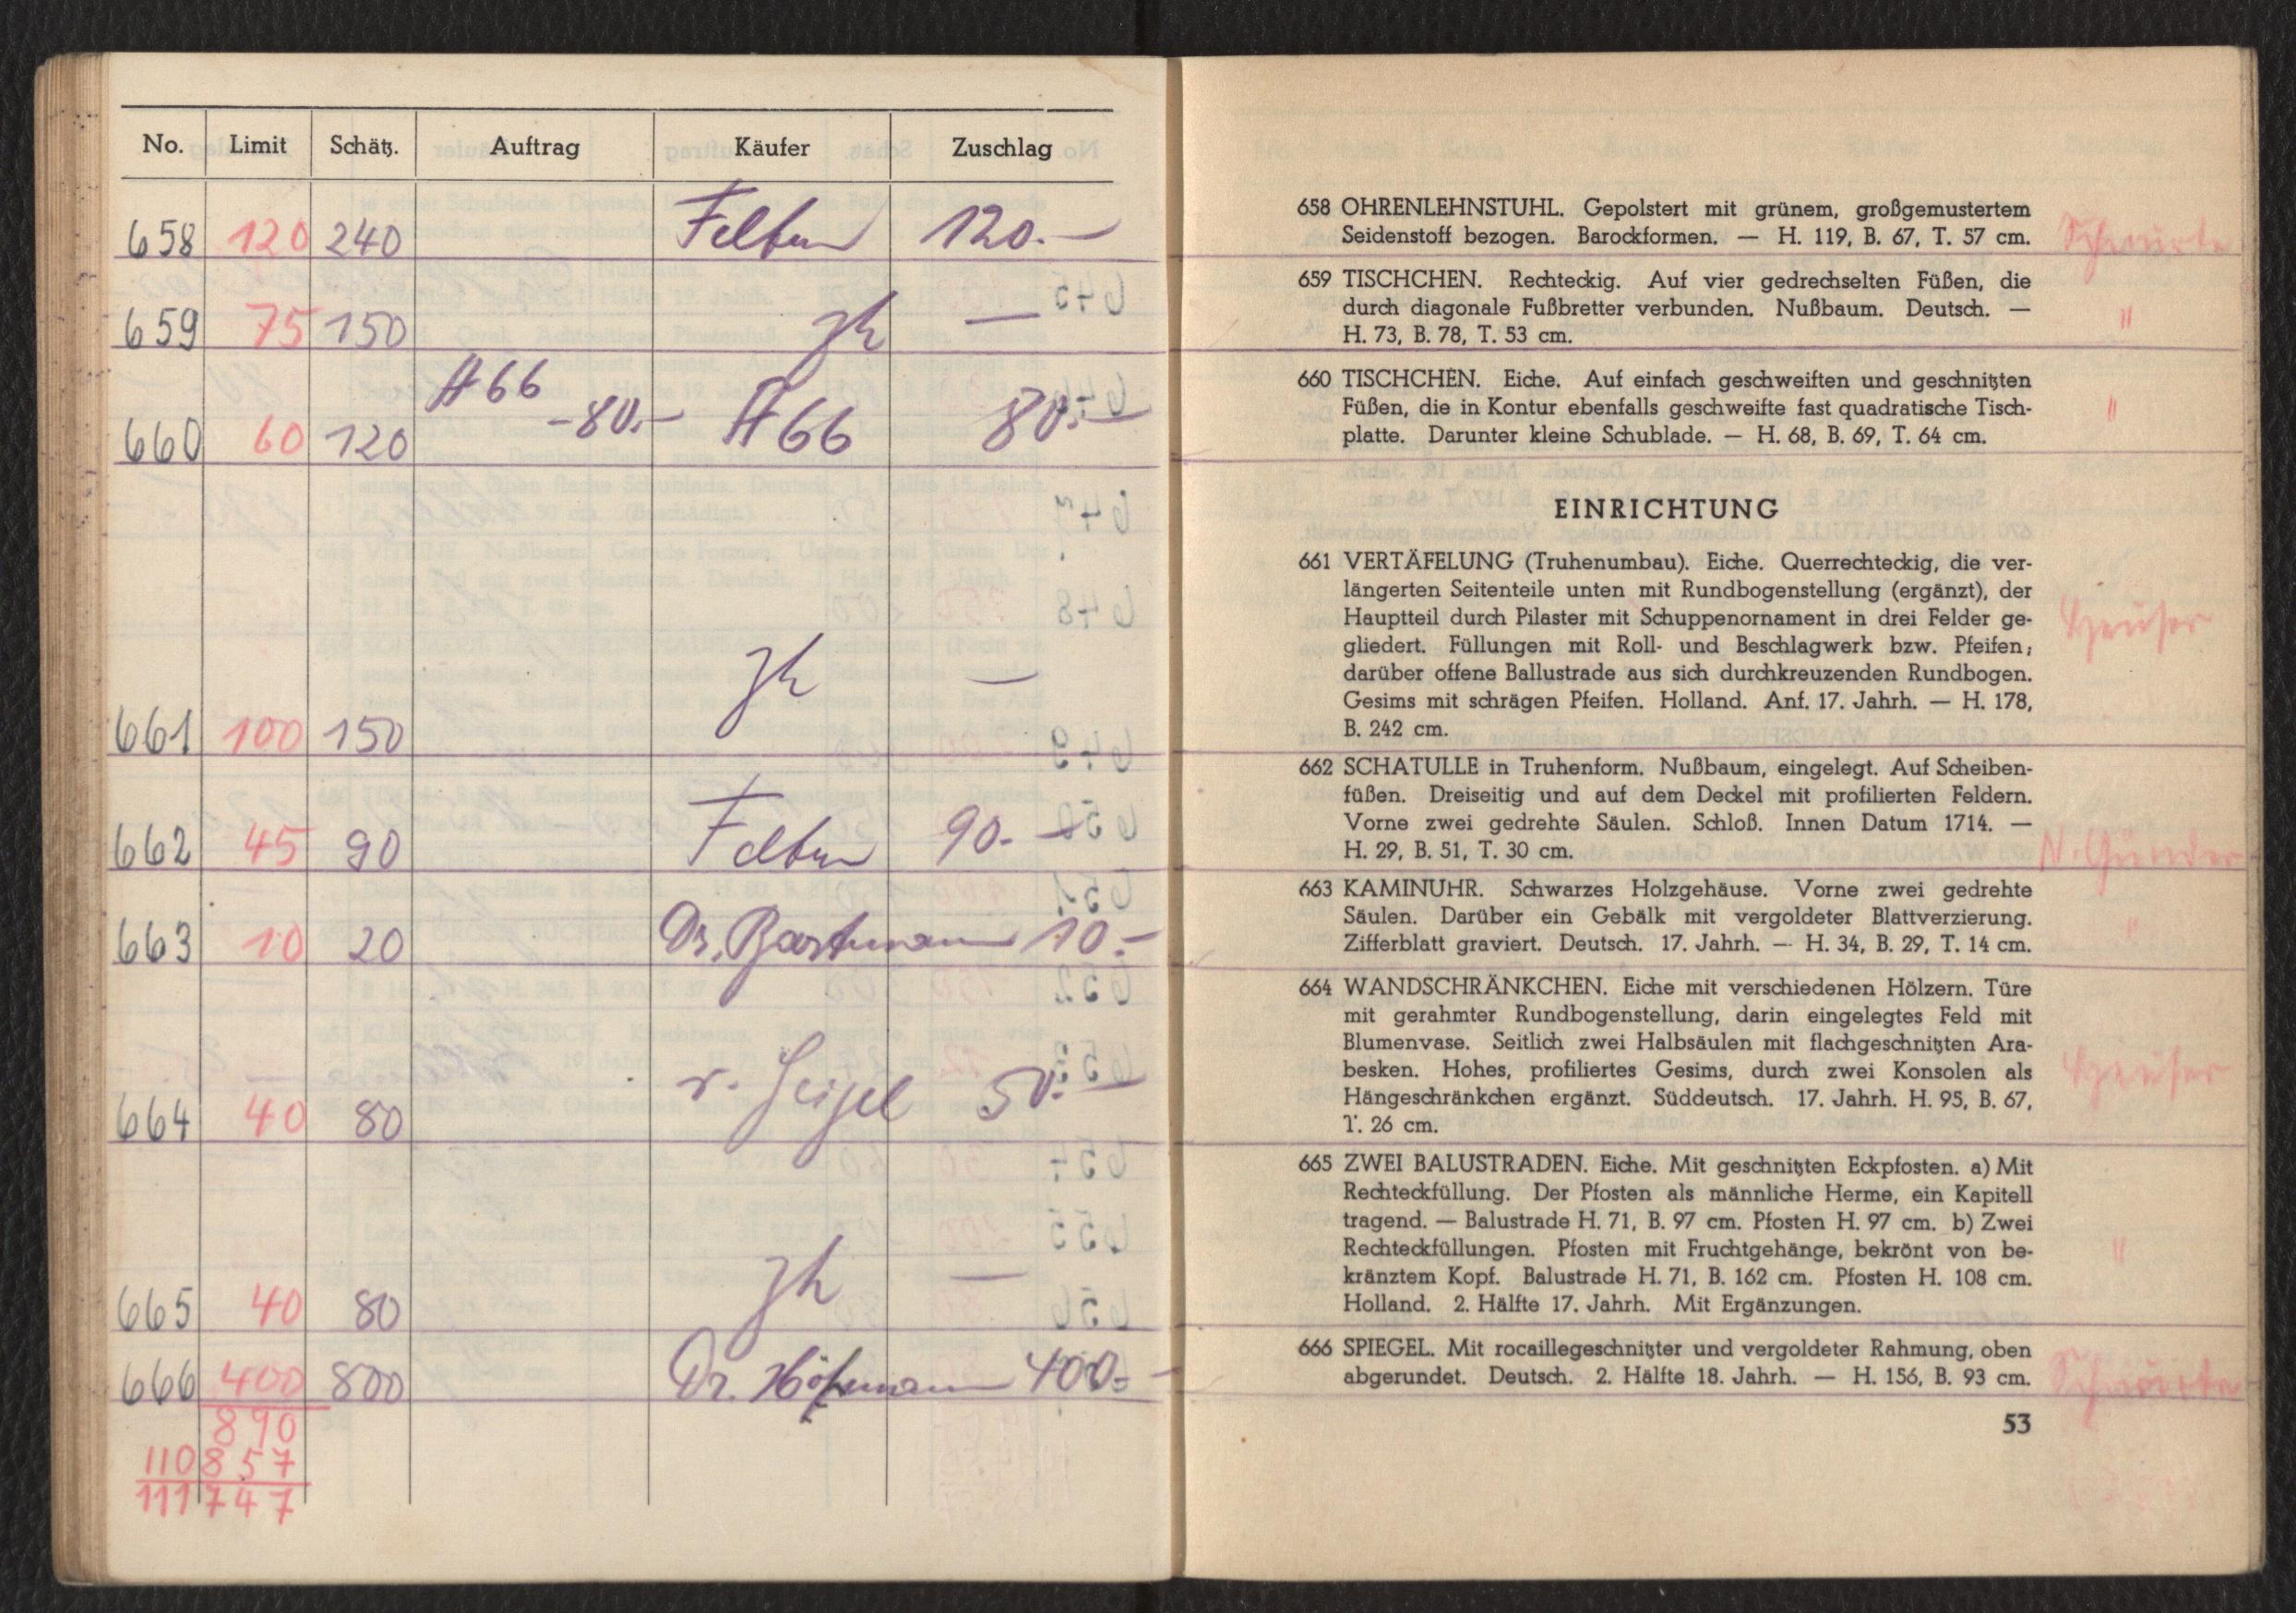 No. Limit Schätz. Auftrag Käufer Zuschlag
658 120 240 Felbun 120.—
659 75 150 zh —
660 60 120 A 66 –80.– A 66 80.—
661 100 150 zh —
662 45 90 90.—
663 10 20 Dr. Bartmann 10.—
664 40 80 v. Geigel 50.—
665 40 80 zh —
666 400 800 Dr. 400.—
890
110857
111747
658 OHRENLEHNSTUHL. Gepolstert mit grünem, großgemustertem
Seidenstoff bezogen. Barockformen. — H. 119, B. 67, T. 57 cm.
659 TISCHCHEN. Rechteckig. Auf vier gedrechselten Füßen, die
durch diagonale Fußbretter verbunden. Nußbaum. Deutsch. — "
H. 73, B. 78, T. 53 cm.
660 TISCHCHEN. Eiche. Auf einfach geschweiften und geschnitzten
Füßen, die in Kontur ebenfalls geschweifte fast quadratische Tisch- "
platte. Darunter kleine Schublade. — H. 68, B. 69, T. 64 cm.
EINRICHTUNG
661 VERTÄFELUNG (Truhenumbau). Eiche. Querrechteckig, die ver-
längerten Seitenteile unten mit Rundbogenstellung (ergänzt), der
Hauptteil durch Pilaster mit Schuppenornament in drei Felder ge-
gliedert. Füllungen mit Roll- und Beschlagwerk bzw. Pfeifen;
darüber offene Ballustrade aus sich durchkreuzenden Rundbogen.
Gesims mit schrägen Pfeifen. Holland. Anf. 17. Jahrh. — H. 178,
B. 242 cm.
662 SCHATULLE in Truhenform. Nußbaum, eingelegt. Auf Scheiben-
füßen. Dreiseitig und auf dem Deckel mit profilierten Feldern.
Vorne zwei gedrehte Säulen. Schloß. Innen Datum 1714. —
H. 29, B. 51, T. 30 cm.
663 KAMINUHR. Schwarzes Holzgehäuse. Vorne zwei gedrehte
Säulen. Darüber ein Gebälk mit vergoldeter Blattverzierung. "
Zifferblatt graviert. Deutsch. 17. Jahrh. — H. 34, B. 29, T. 14 cm.
664 WANDSCHRÄNKCHEN. Eiche mit verschiedenen Hölzern. Türe
mit gerahmter Rundbogenstellung, darin eingelegtes Feld mit
Blumenvase. Seitlich zwei Halbsäulen mit flachgeschnitzten Ara-
besken. Hohes, profiliertes Gesims, durch zwei Konsolen als
Hängeschränkchen ergänzt. Süddeutsch. 17. Jahrh. H. 95, B. 67,
T. 26 cm.
665 ZWEI BALUSTRADEN. Eiche. Mit geschnitzten Eckpfosten. a) Mit
Rechteckfüllung. Der Pfosten als männliche Herme, ein Kapitell
tragend. — Balustrade H. 71, B. 97 cm. Pfosten H. 97 cm. b) Zwei
Rechteckfüllungen. Pfosten mit Fruchtgehänge, bekrönt von be- "
kränztem Kopf. Balustrade H. 71, B. 162 cm. Pfosten H. 108 cm.
Holland. 2. Hälfte 17. Jahrh. Mit Ergänzungen.
666 SPIEGEL. Mit rocaillegeschnitzter und vergoldeter Rahmung, oben
abgerundet. Deutsch. 2. Hälfte 18. Jahrh. — H. 156, B. 93 cm.
53